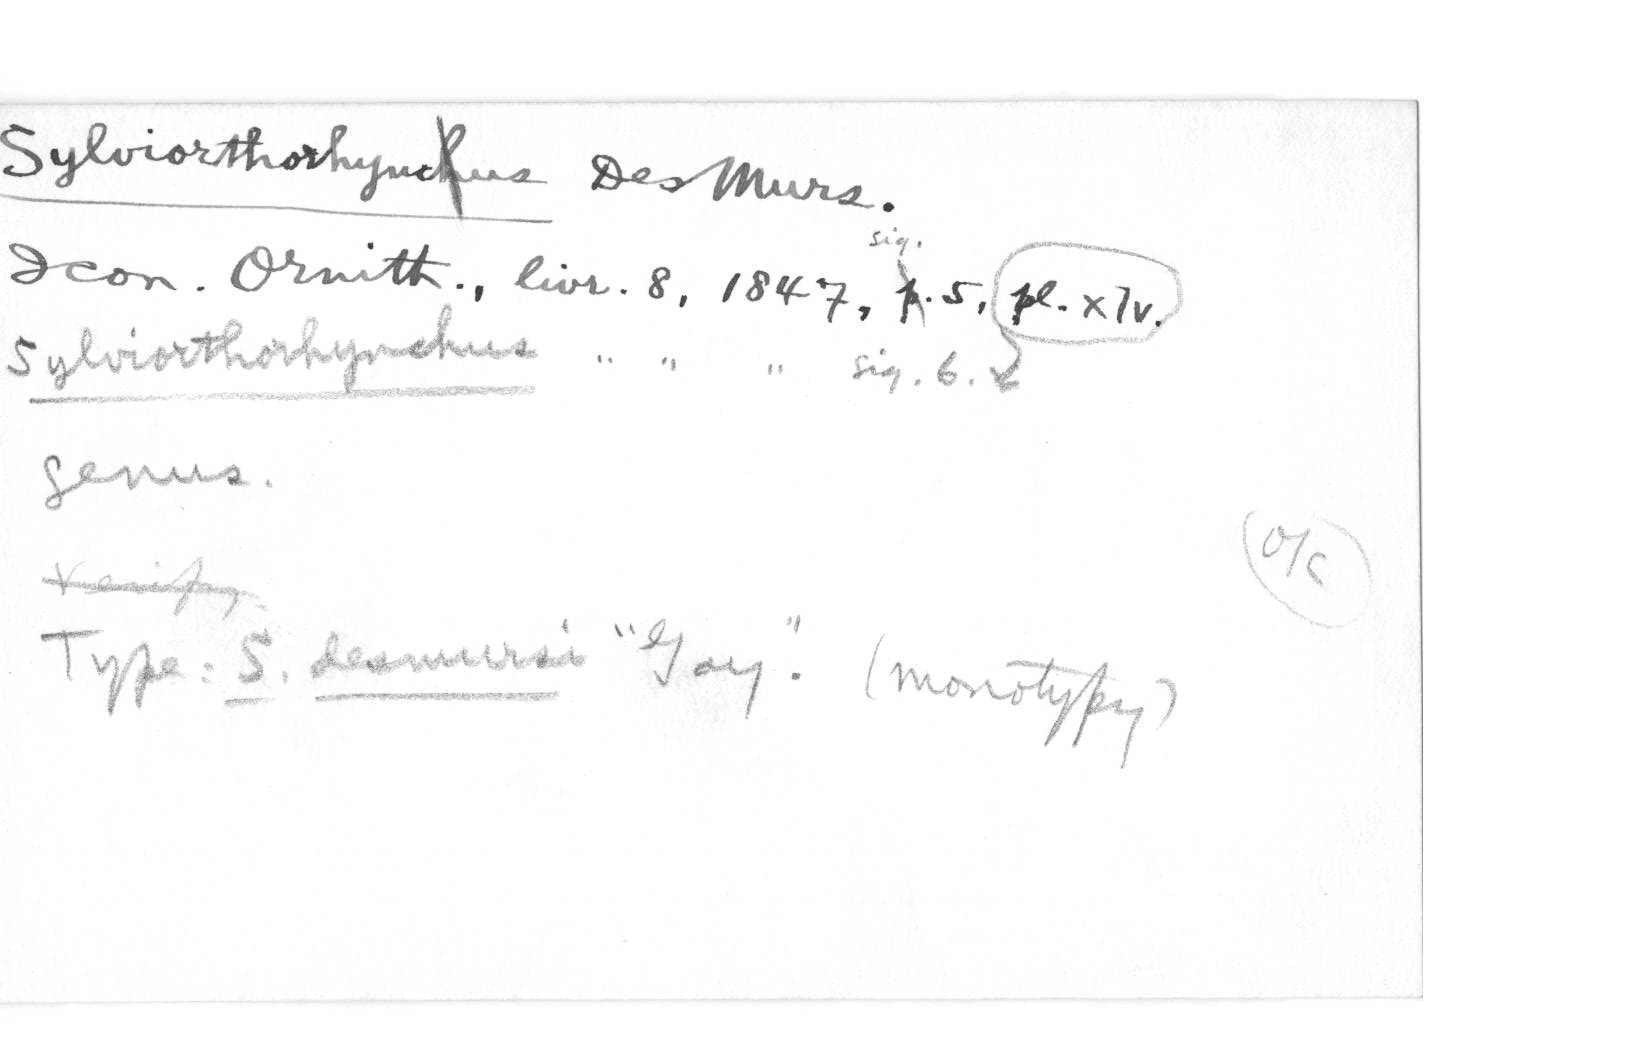 Sylviorthorhynchus Des Murs.
sig.
Icon. Ornith., livr. 8, 1847, p. 5, pl. xlv.
Sylviorthorhynchus " " " sig. 6.
genus.
o/c
Verify
Type: S. desmursi "Gay". (monotypy)